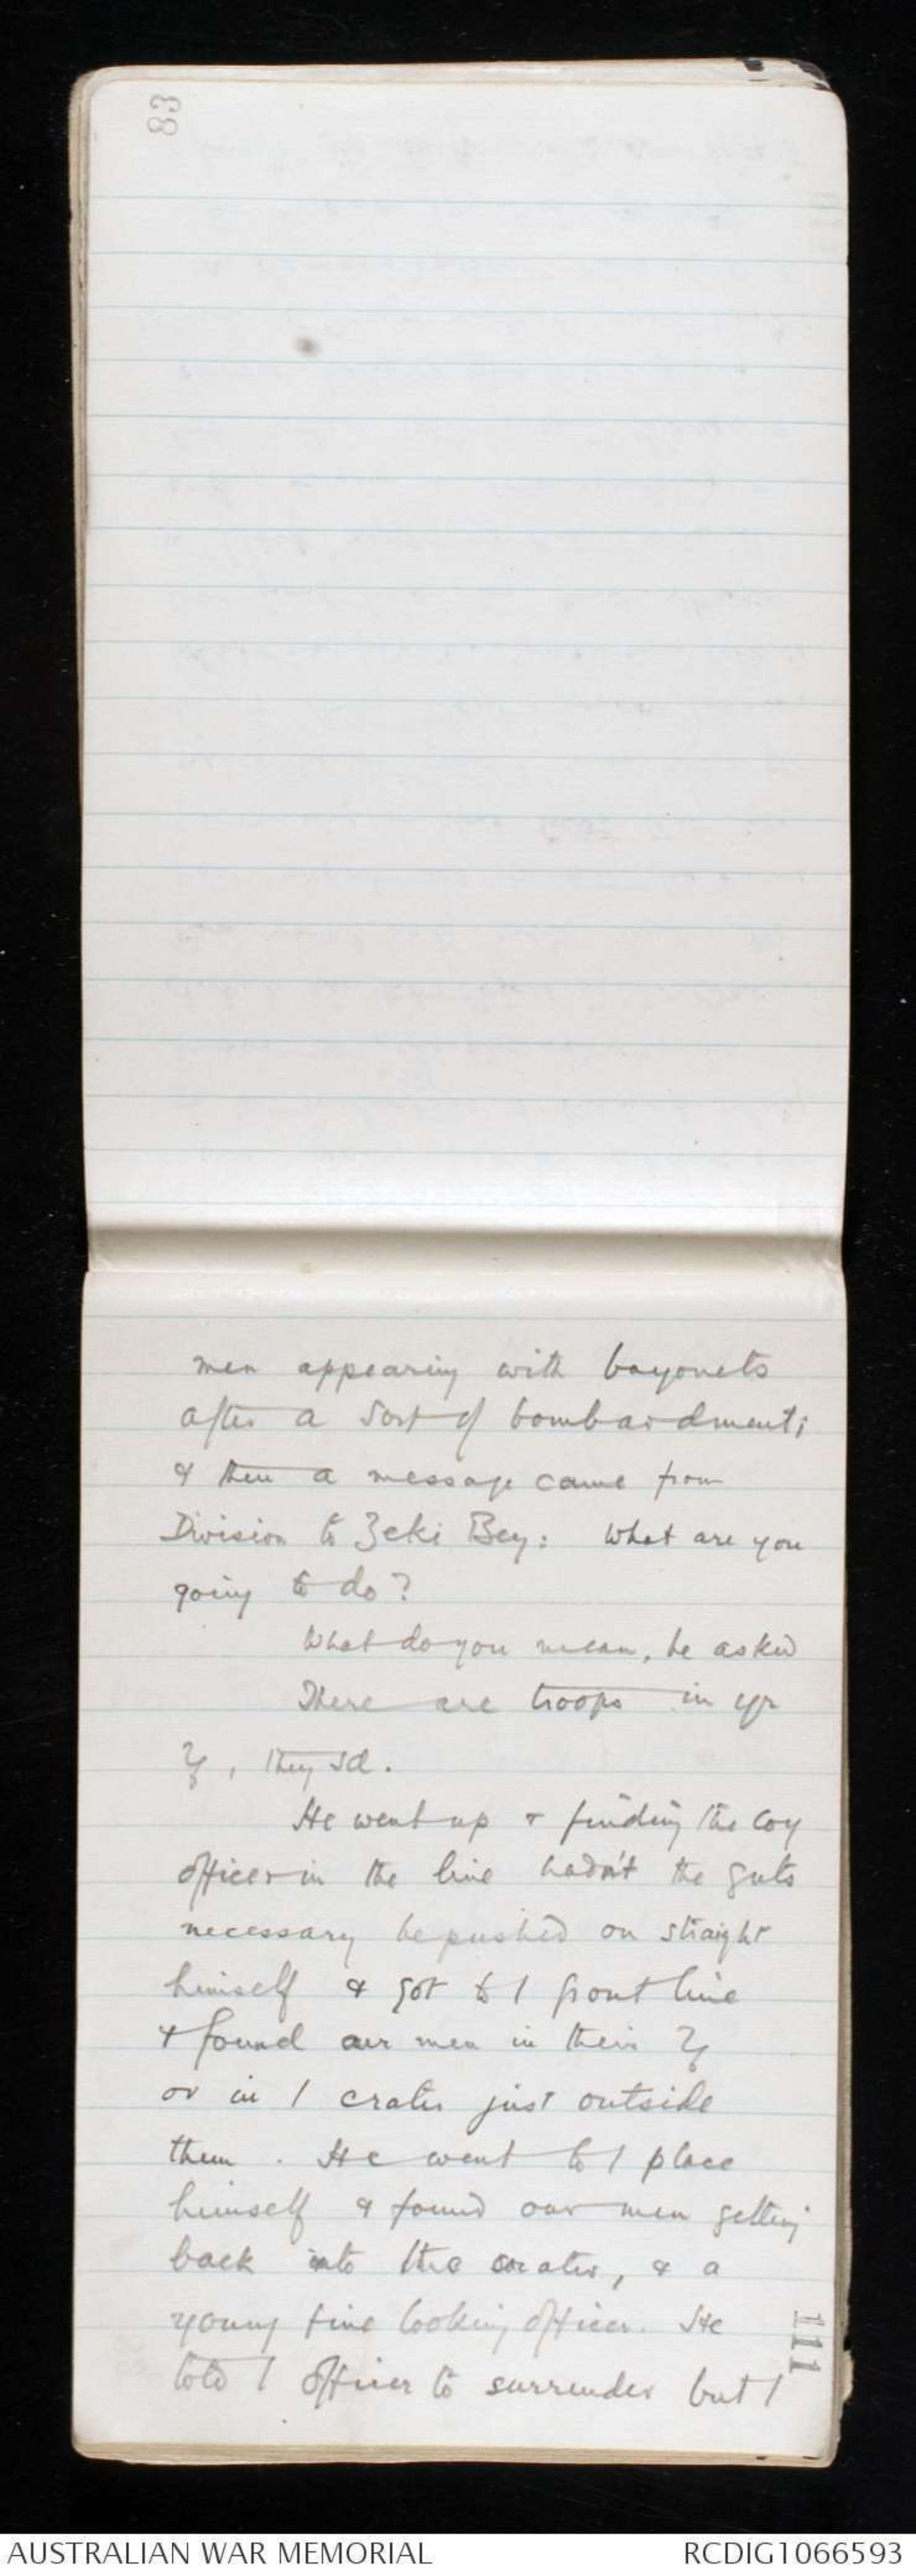 83
men appearing with bayonets
after a sort of bombardment;
& then a message came from
Division to Zeki Bey: What are you
going to do?
What do you mean, he asked
There are troops in yr
, they sd.
He went up & finding the Coy
officer in the line hadn't the guts
necessary he pushed on straight
himself & got to / front line
& found our men in their
or in / crater just outside
them. He went to / place
himself & found our men getting
back into the crater, & a
young fine looking officer. He
told / officer to surrender but /
111
AUSTRALIAN WAR MEMORIAL
RCDIG1066593